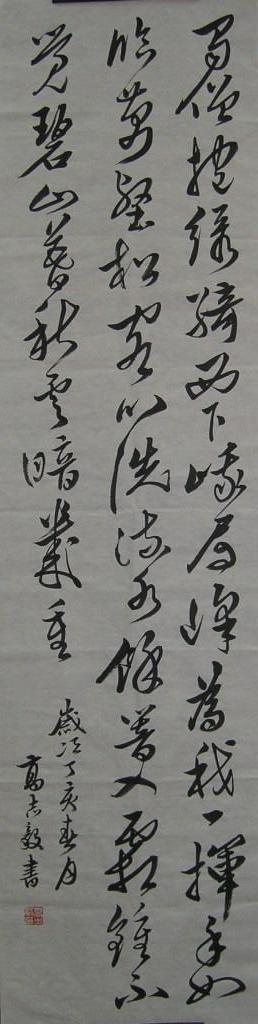 蜀僧抱綠綺西下峨眉峰為我一揮手如
聽萬壑松客心洗流水餘響入霜鍾不
覺碧山暮秋雲暗幾重
歲次丁亥春月
高志毅書